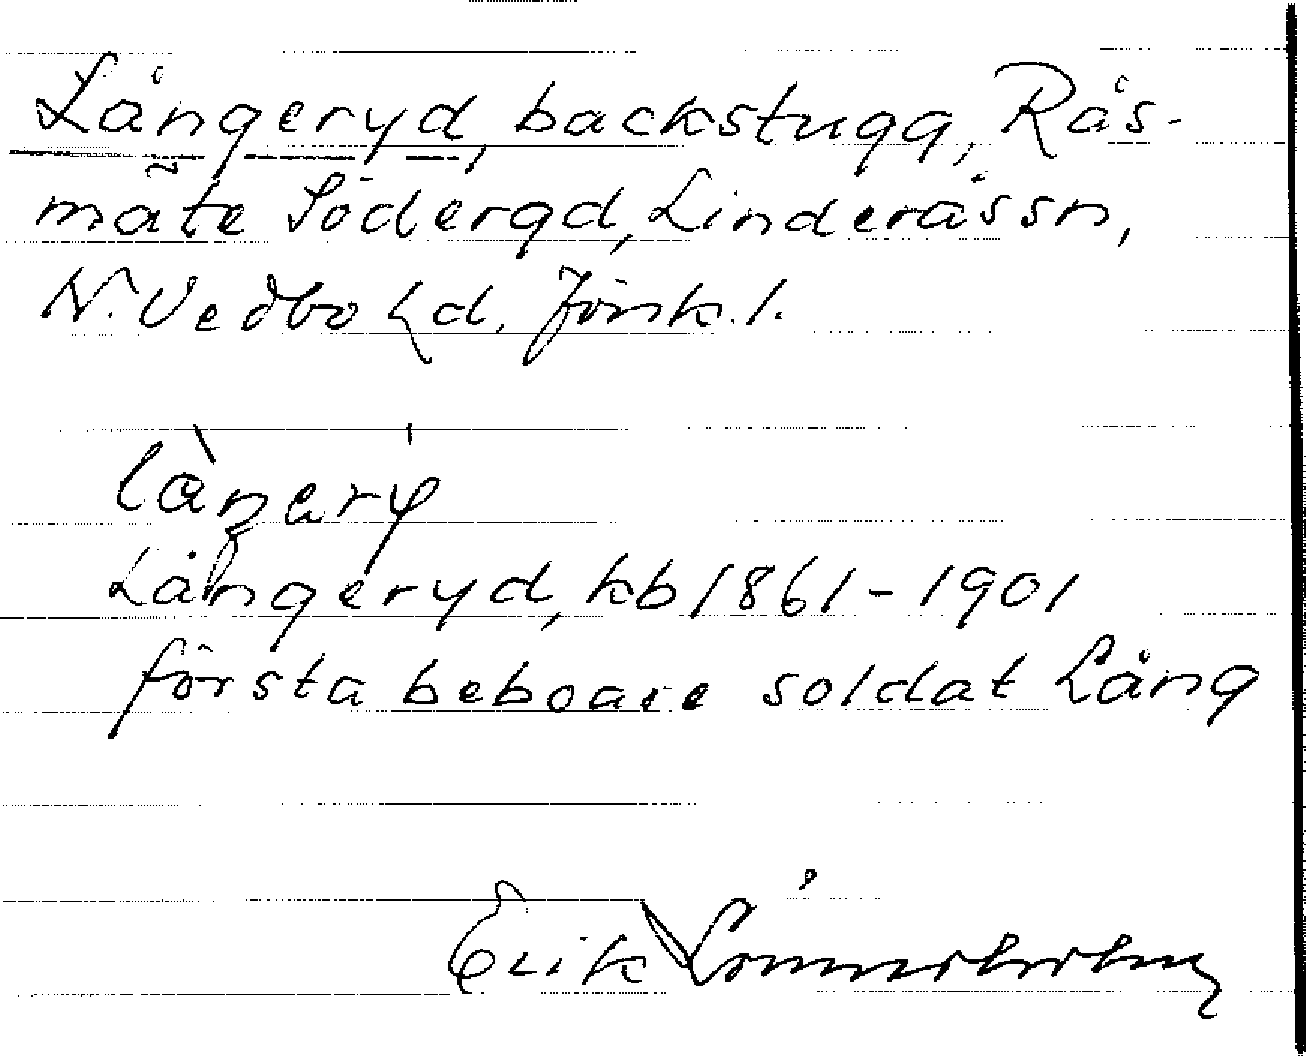 Långeryd, backstuga, Rås-
måla Söderqd, Linderås sn,
N. Vedbo hd, Jönk. l.
låŋery
Långeryd, kb 1861-1901
första beboare soldat Lång
Erik